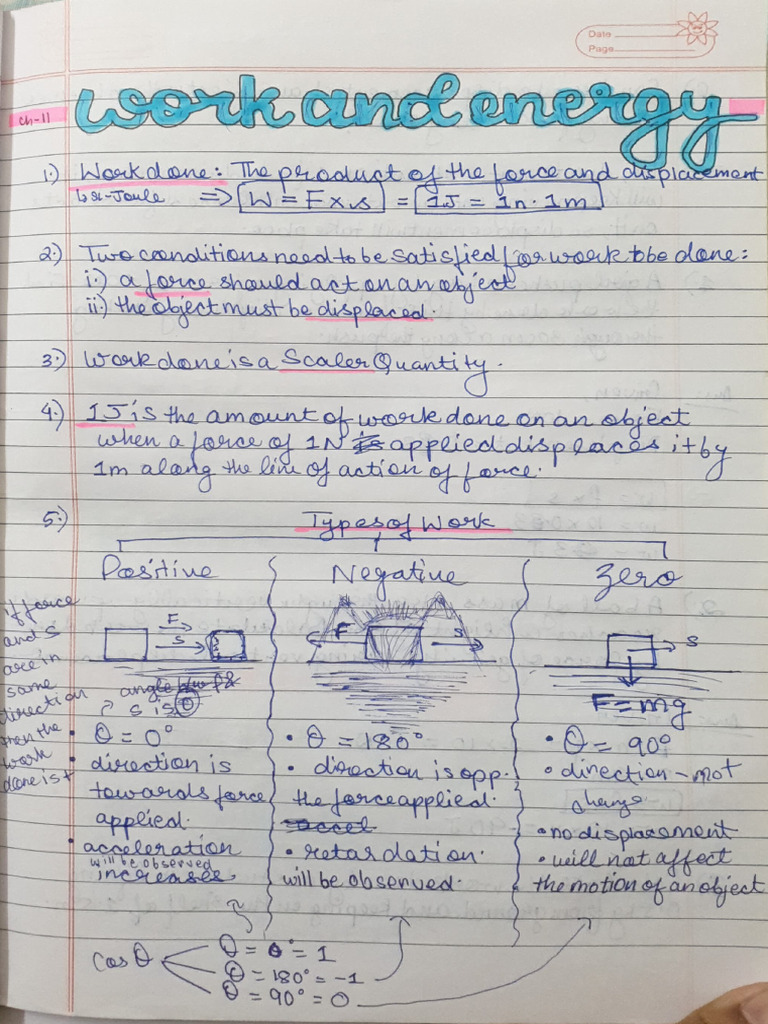 Date
Page
ch-11
work and energy
1.) Work done: The product of the force and displacement
↳ SI-Joule ⇒ W = F x s = 1J = 1n · 1m
2.) Two conditions need to be satisfied for work to be done:
i.) a force should act on an object
ii.) the object must be displaced.
3.) Work done is a Scaler Quantity.
4.) 1J is the amount of work done on an object
when a force of 1N is applied displaces it by
1m along the line of action of force.
5.) Types of Work
Positive
if force
and s
are in
same
direction
then the
work
done is +
F
s
angle b/w f &
s is θ
θ = 0°
• direction is
towards force
applied.
• acceleration
will be observed
increases.
Negative
F
s
• θ = 180°
• direction is opp.
the force applied.
accel
• retardation
will be observed.
Zero
s
F = mg
• θ = 90°
• direction - not
change
• no displacement
• will not affect
the motion of an object
cos θ
θ = 0° = 1
θ = 180° = -1
θ = 90° = 0